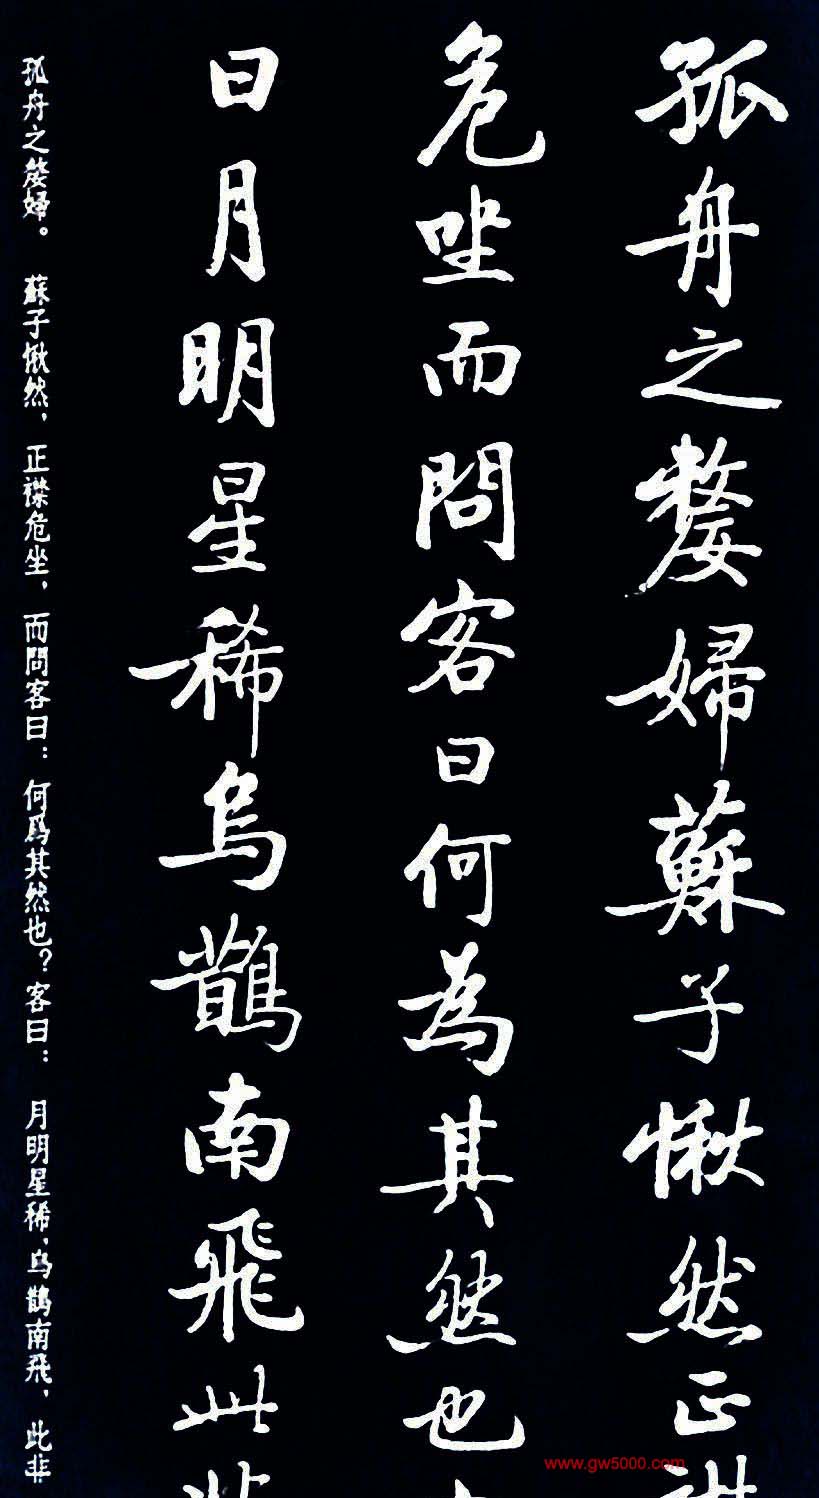 孤舟之嫠婦蘇子愀然正
危坐而問客曰何為其然也
曰月明星稀烏鵲南飛此
孤舟之嫠婦。蘇子愀然，正襟危坐，而問客曰：何爲其然也？客曰：月明星稀，烏鵲南飛，此非
www.gw5000.com